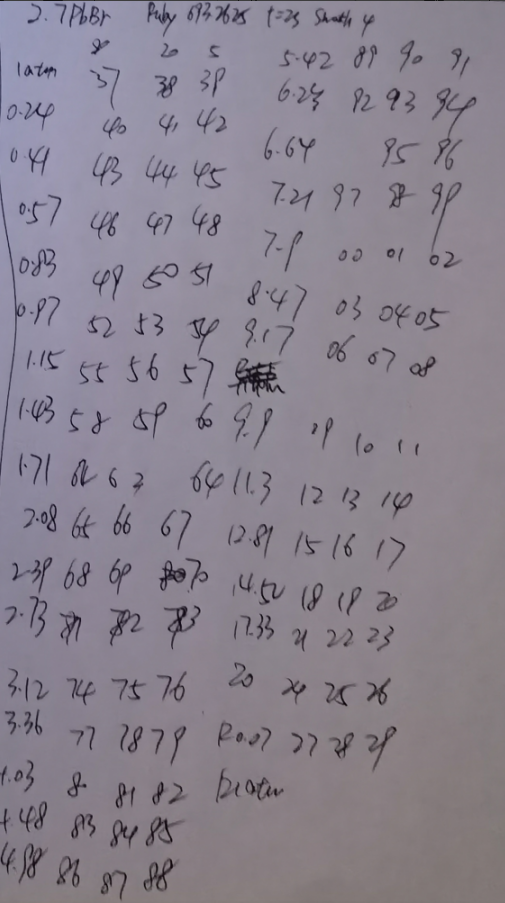 2.7PbBr Ruby 6932625 t=23 Smooth 4
80 20 5
1atm 37 38 39
0.24 40 41 42
0.41 43 44 45
0.57 46 47 48
0.83 49 50 51
0.97 52 53 54
1.15 55 56 57
1.43 58 59 60
1.71 62 63 64
2.08 65 66 67
2.39 68 69 70
2.73 71 72 73
3.12 74 75 76
3.36 77 78 79
4.03 80 81 82
4.48 83 84 85
4.98 86 87 88
5.42 89 90 91
6.23 92 93 94
6.64 95 96
7.21 97 98 99
7.9 00 01 02
8.47 03 04 05
9.17 06 07 08
9.9 09 10 11
11.3 12 13 14
12.81 15 16 17
14.52 18 19 20
17.33 21 22 23
20 24 25 26
R0.07 27 28 29